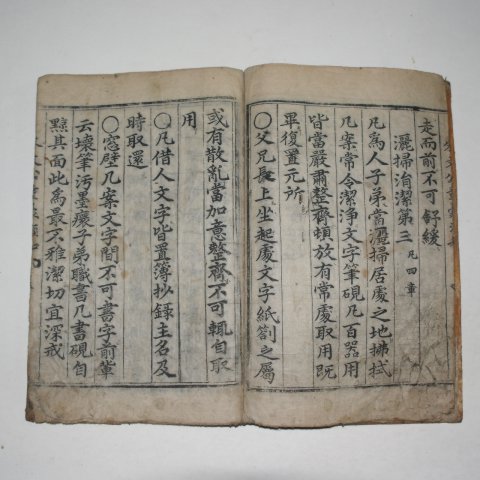 走而前不可舒緩
灑掃涓潔第三 凡四章
凡為人子弟當灑掃居處之地拂拭
几案常令潔淨文字筆硯凡百器用
皆當嚴肅整齊頓放有常處取用既
畢復置元所
○父兄長上坐起處文字紙劄之屬
或有散亂當加意整齊不可輒自取
用
○凡借人文字皆置簿抄錄主名及
時取還
○窓壁几案文字間不可書字前輩
云壞筆汚墨瘝子弟職書几書硯自
黥其面此為最不雅潔切宜深戒